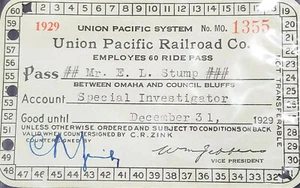 1929 UNION PACIFIC SYSTEM No. MO. 1355
Union Pacific Railroad Co.
EMPLOYES 60 RIDE PASS
Pass ## Mr. E. L. Stump ###
BETWEEN OMAHA AND COUNCIL BLUFFS
Account Special Investigator
Good until December 31, 1929
UNLESS OTHERWISE ORDERED AND SUBJECT TO CONDITIONS ON BACK
VALID WHEN COUNTERSIGNED BY C.R. ZINK
COUNTERSIGNED
VICE PRESIDENT
NOT TRANSFERABLE
60
1
2
3
4
5
6
7
8
9
10
11
12
13
14
15
16
17
18
48
47
46
45
44
43
42
41
40
39
38
37
36
35
34
33
32
31